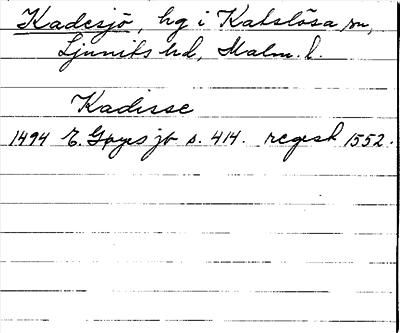 Kadesjö, hg i Katslösa sn,
Ljunits hd, Malm. l.
Kadisse
1494 E. Gøyes jb s. 414. regest 1552.